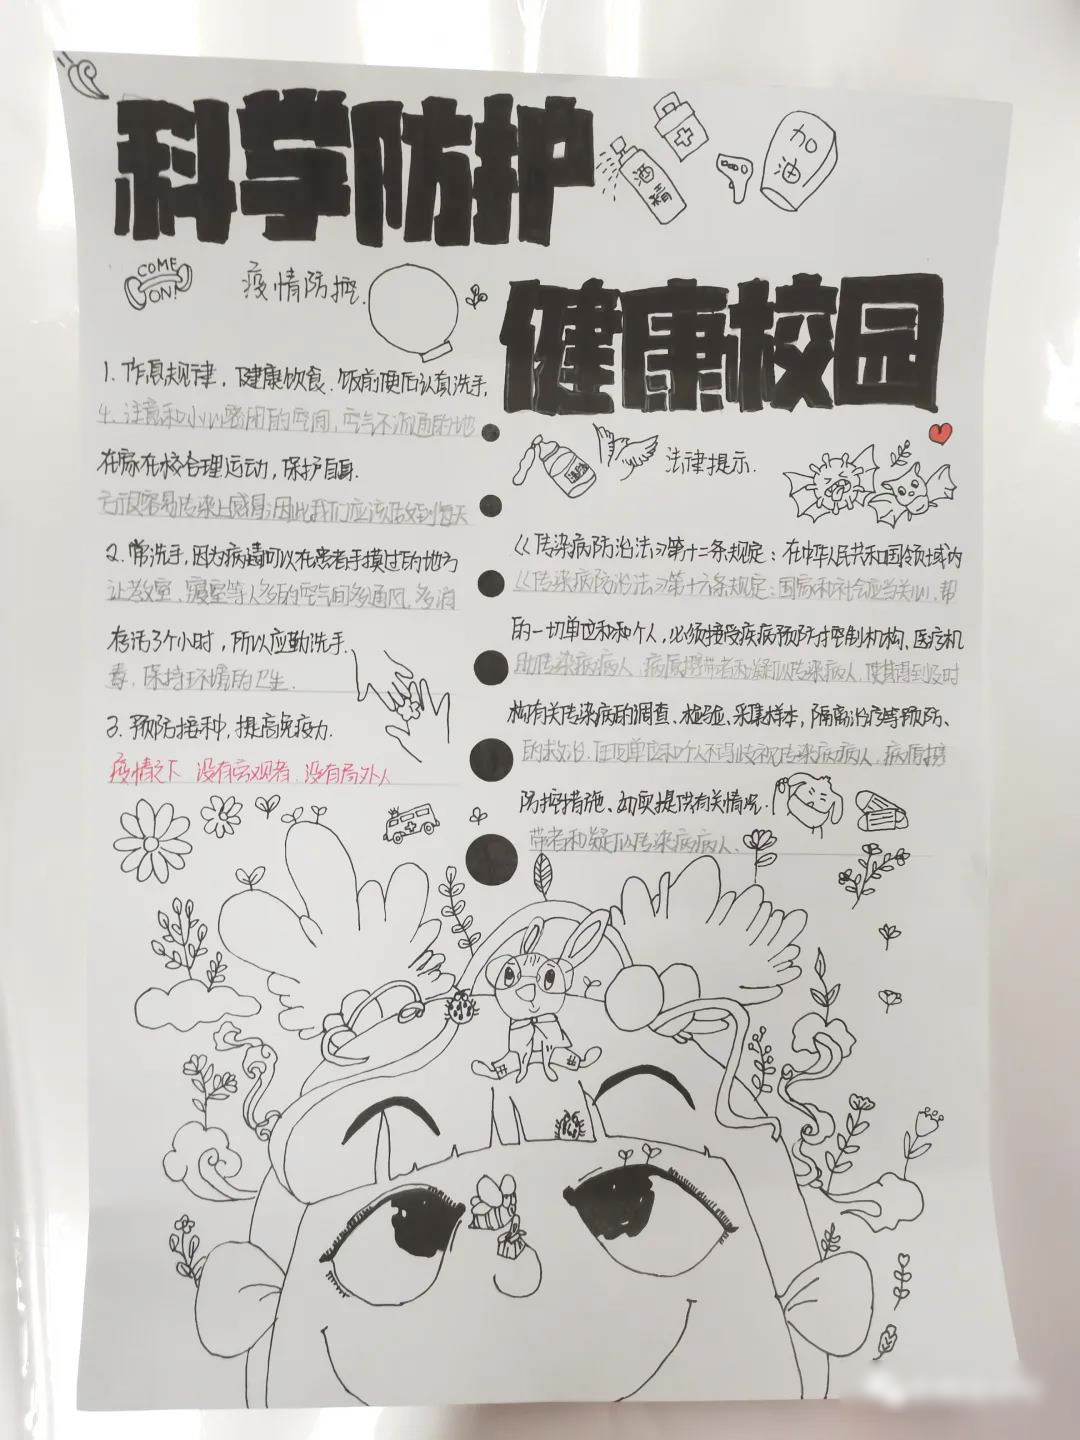 科学防护
酒精
加油
COME ON!
疫情防控.
健康校园
1. 作息规律，健康饮食、饭前便后认真洗手，
4、注意和小心密闭的空间，空气不流通的地
在家在校合理运动，保护自身.
方很容易传染上感冒；因此我们应该做到每天
2. 常洗手，因为病毒可以在患者手摸过的地方
让教室、寝室等人多的空气间多通风、多消
存活3个小时，所以应勤洗手.
毒，保持环境的卫生.
3. 预防接种，提高免疫力.
疫情之下 没有旁观者、没有局外人
法律提示.
《传染病防治法》第十二条规定：在中华人民共和国领域内
《传染病防治法》第十六条规定：国家和社会应当关心、帮
的一切单位和和个人，必须接受疾病预防控制机构、医疗机
助传染病病人、病原携带者和疑似传染病人，使其得到及时
构有关传染病的调查、检验、采集样本，隔离治疗等预防、
的救治、任何单位和个人不得歧视传染病病人、病原携
防控措施、如实提供有关情况.
带者和疑似传染病病人、